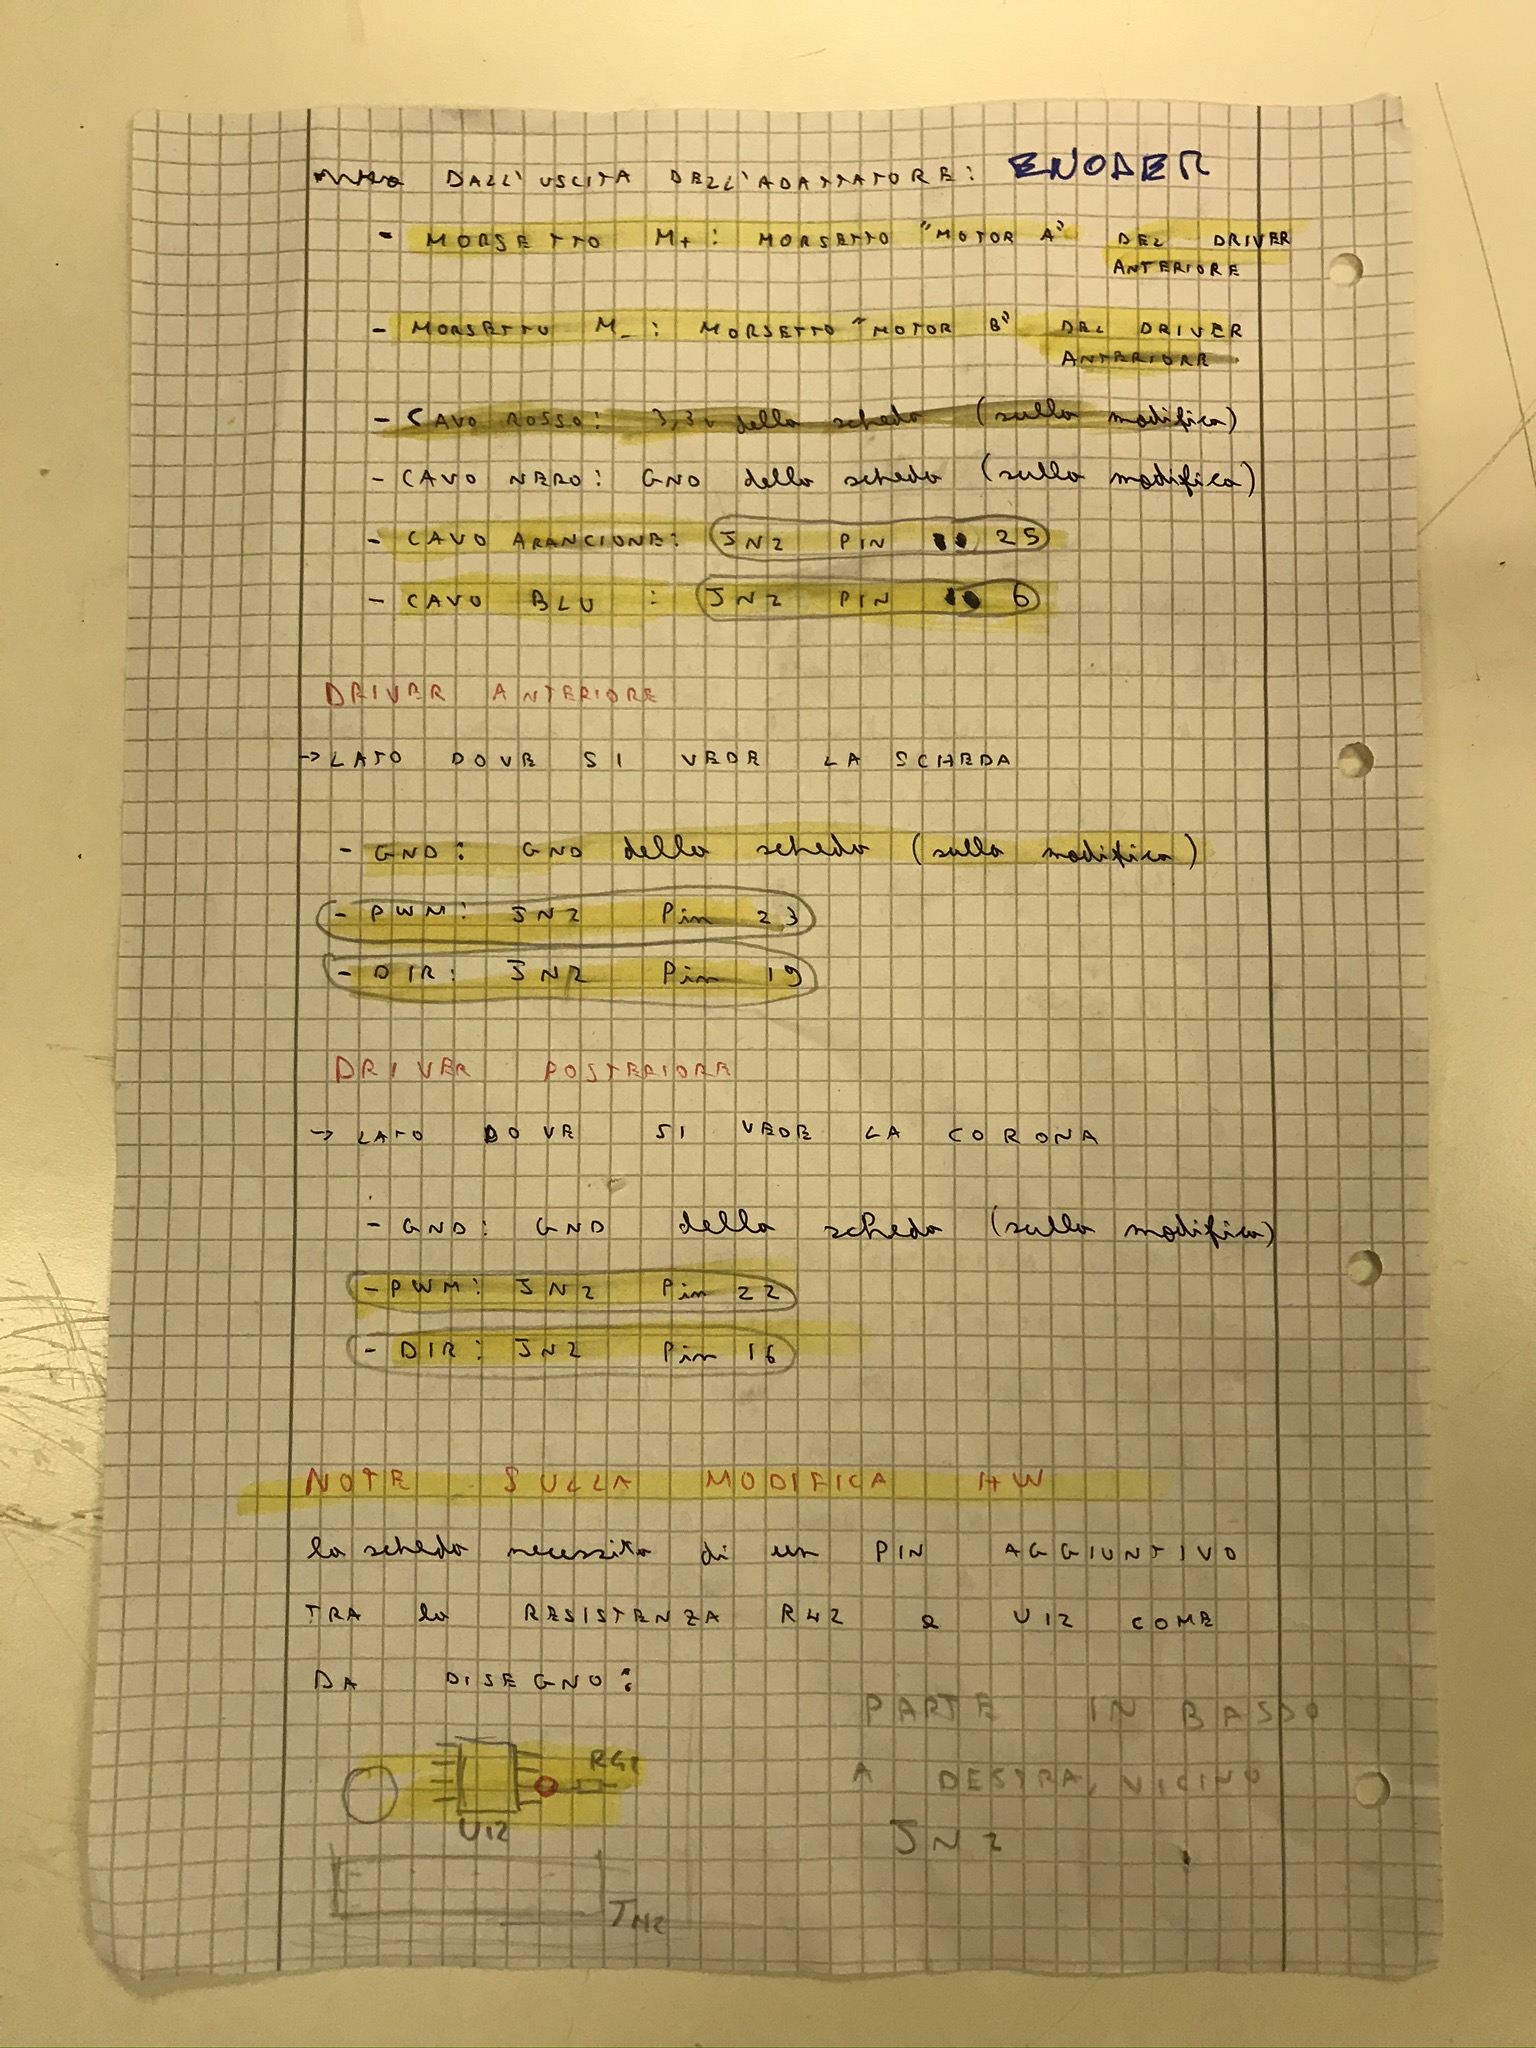 DALL'USCITA DELL'ADATTATORE: ENODER
- MORSETTO M+: MORSETTO "MOTOR A" DEL DRIVER
ANTERIORE
- MORSETTO M-: MORSETTO "MOTOR B" DEL DRIVER
ANTERIORE
- CAVO ROSSO: 3,3V della scheda (sulla modifica)
- CAVO NERO: GND della scheda (sulla modifica)
- CAVO ARANCIONE: JN2 PIN 25
- CAVO BLU : JN2 PIN 6
DRIVER ANTERIORE
→ LATO DOVE SI VEDE LA SCHEDA
- GND: GND della scheda (sulla modifica)
- PWM: JN2 Pin 23
- DIR: JN2 Pin 19
DRIVER POSTERIORE
→ LATO DOVE SI VEDE LA CORONA
- GND: GND della scheda (sulla modifica)
- PWM: JN2 Pin 22
- DIR: JN2 Pin 16
NOTE SULLA MODIFICA HW
la scheda necessita di un PIN AGGIUNTIVO
TRA la RESISTENZA R42 e U12 COME
DA DISEGNO:
PARTE IN BASSO
A DESTRA, VICINO
JN2
U12
JN2